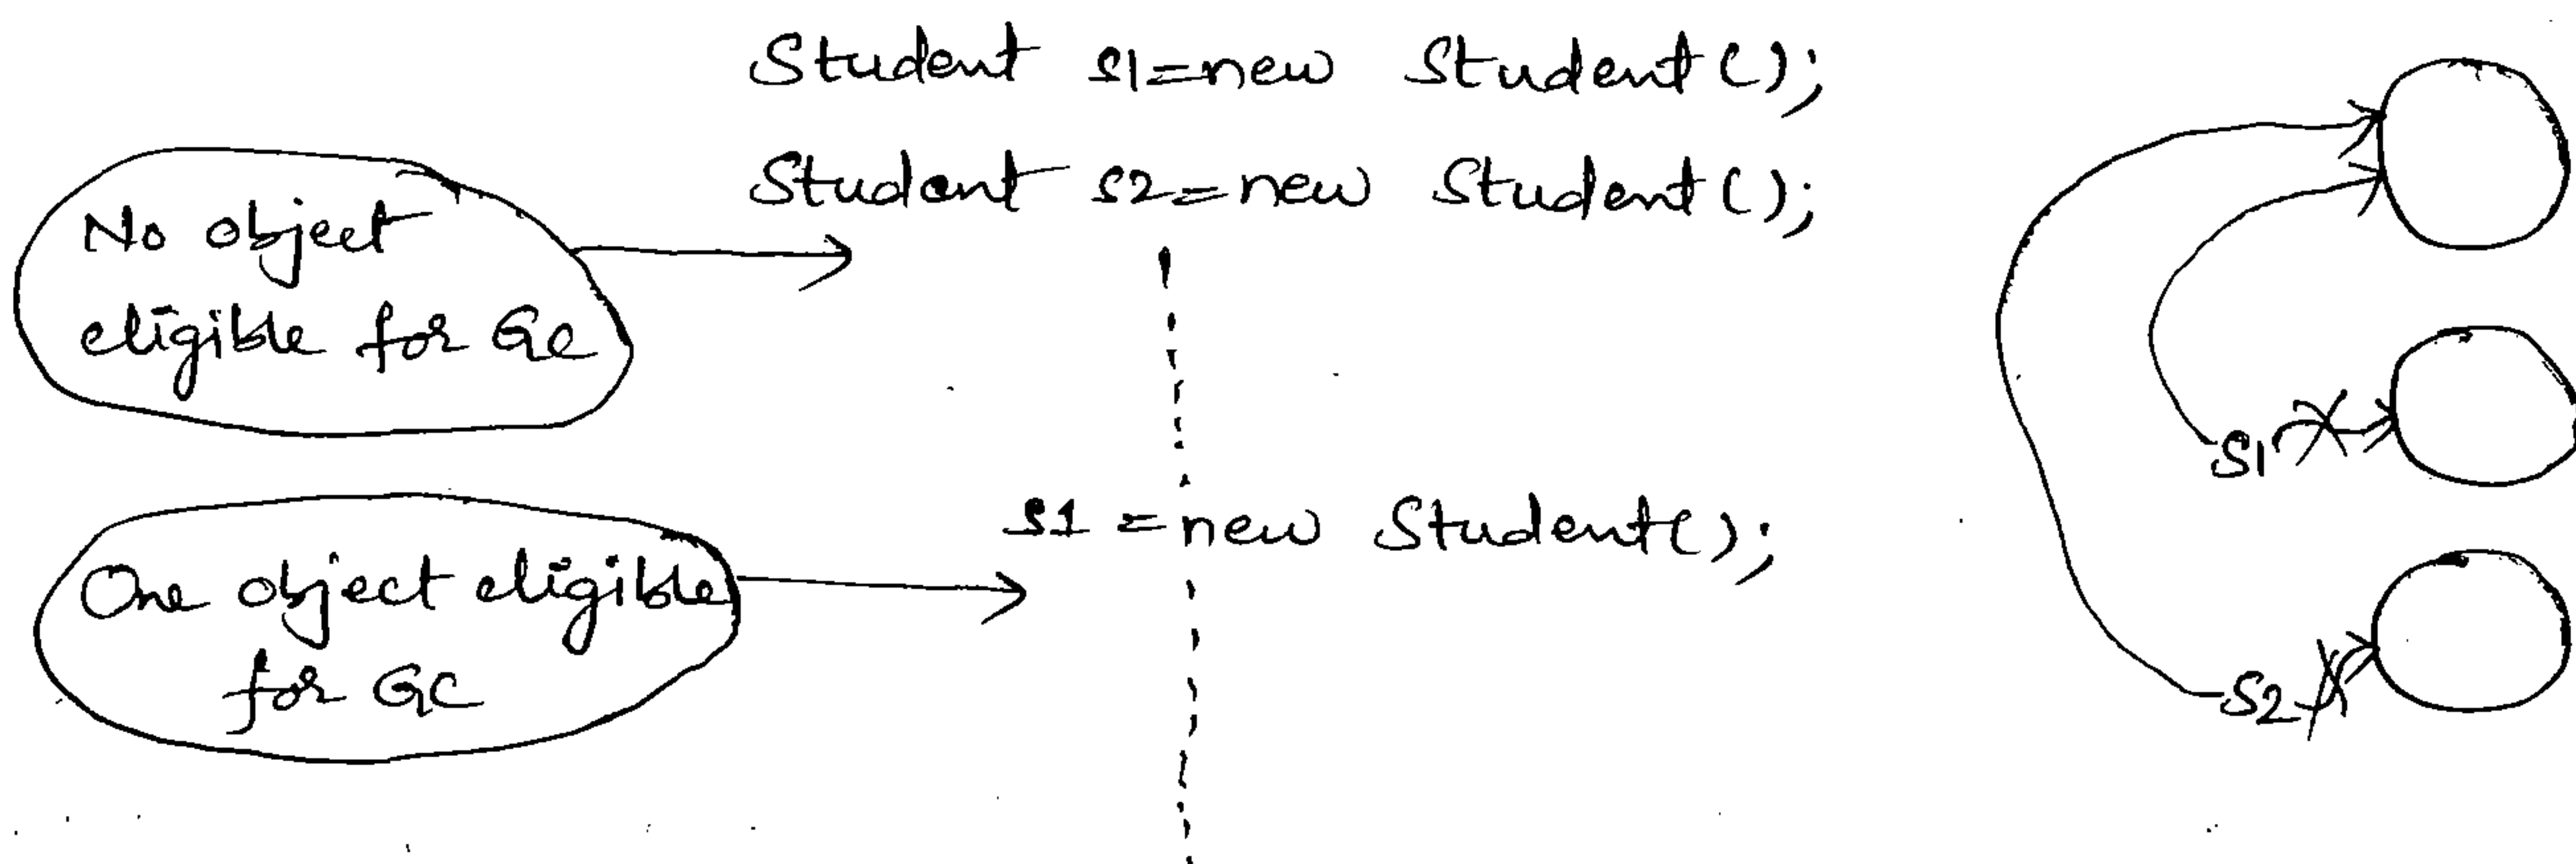 Student s1=new Student();
Student s2=new Student();
No object
eligible for GC
s1 = new Student();
One object eligible
for GC
S1
S2